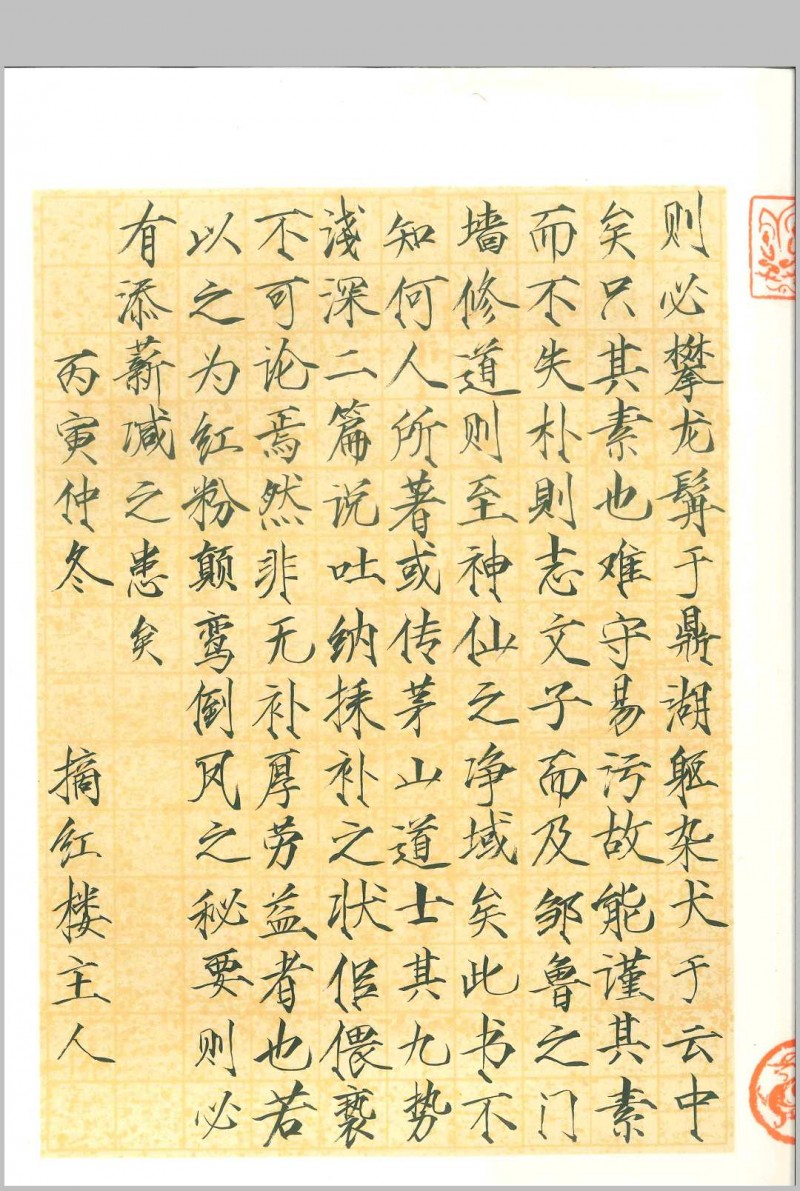 则必攀龙髯于鼎湖躯杂犬于云中
矣只其素也难守易污故能谨其素
而不失朴则志文子而及邹鲁之门
墙修道则至神仙之净域矣此书不
知何人所著或传茅山道士其九势
浅深二篇说吐纳採补之状侣偎亵
不可论焉然非无补厚劳益者也若
以之为红粉颠鸾倒凤之秘要则必
有添薪减之患矣
丙寅仲冬 摘红楼主人